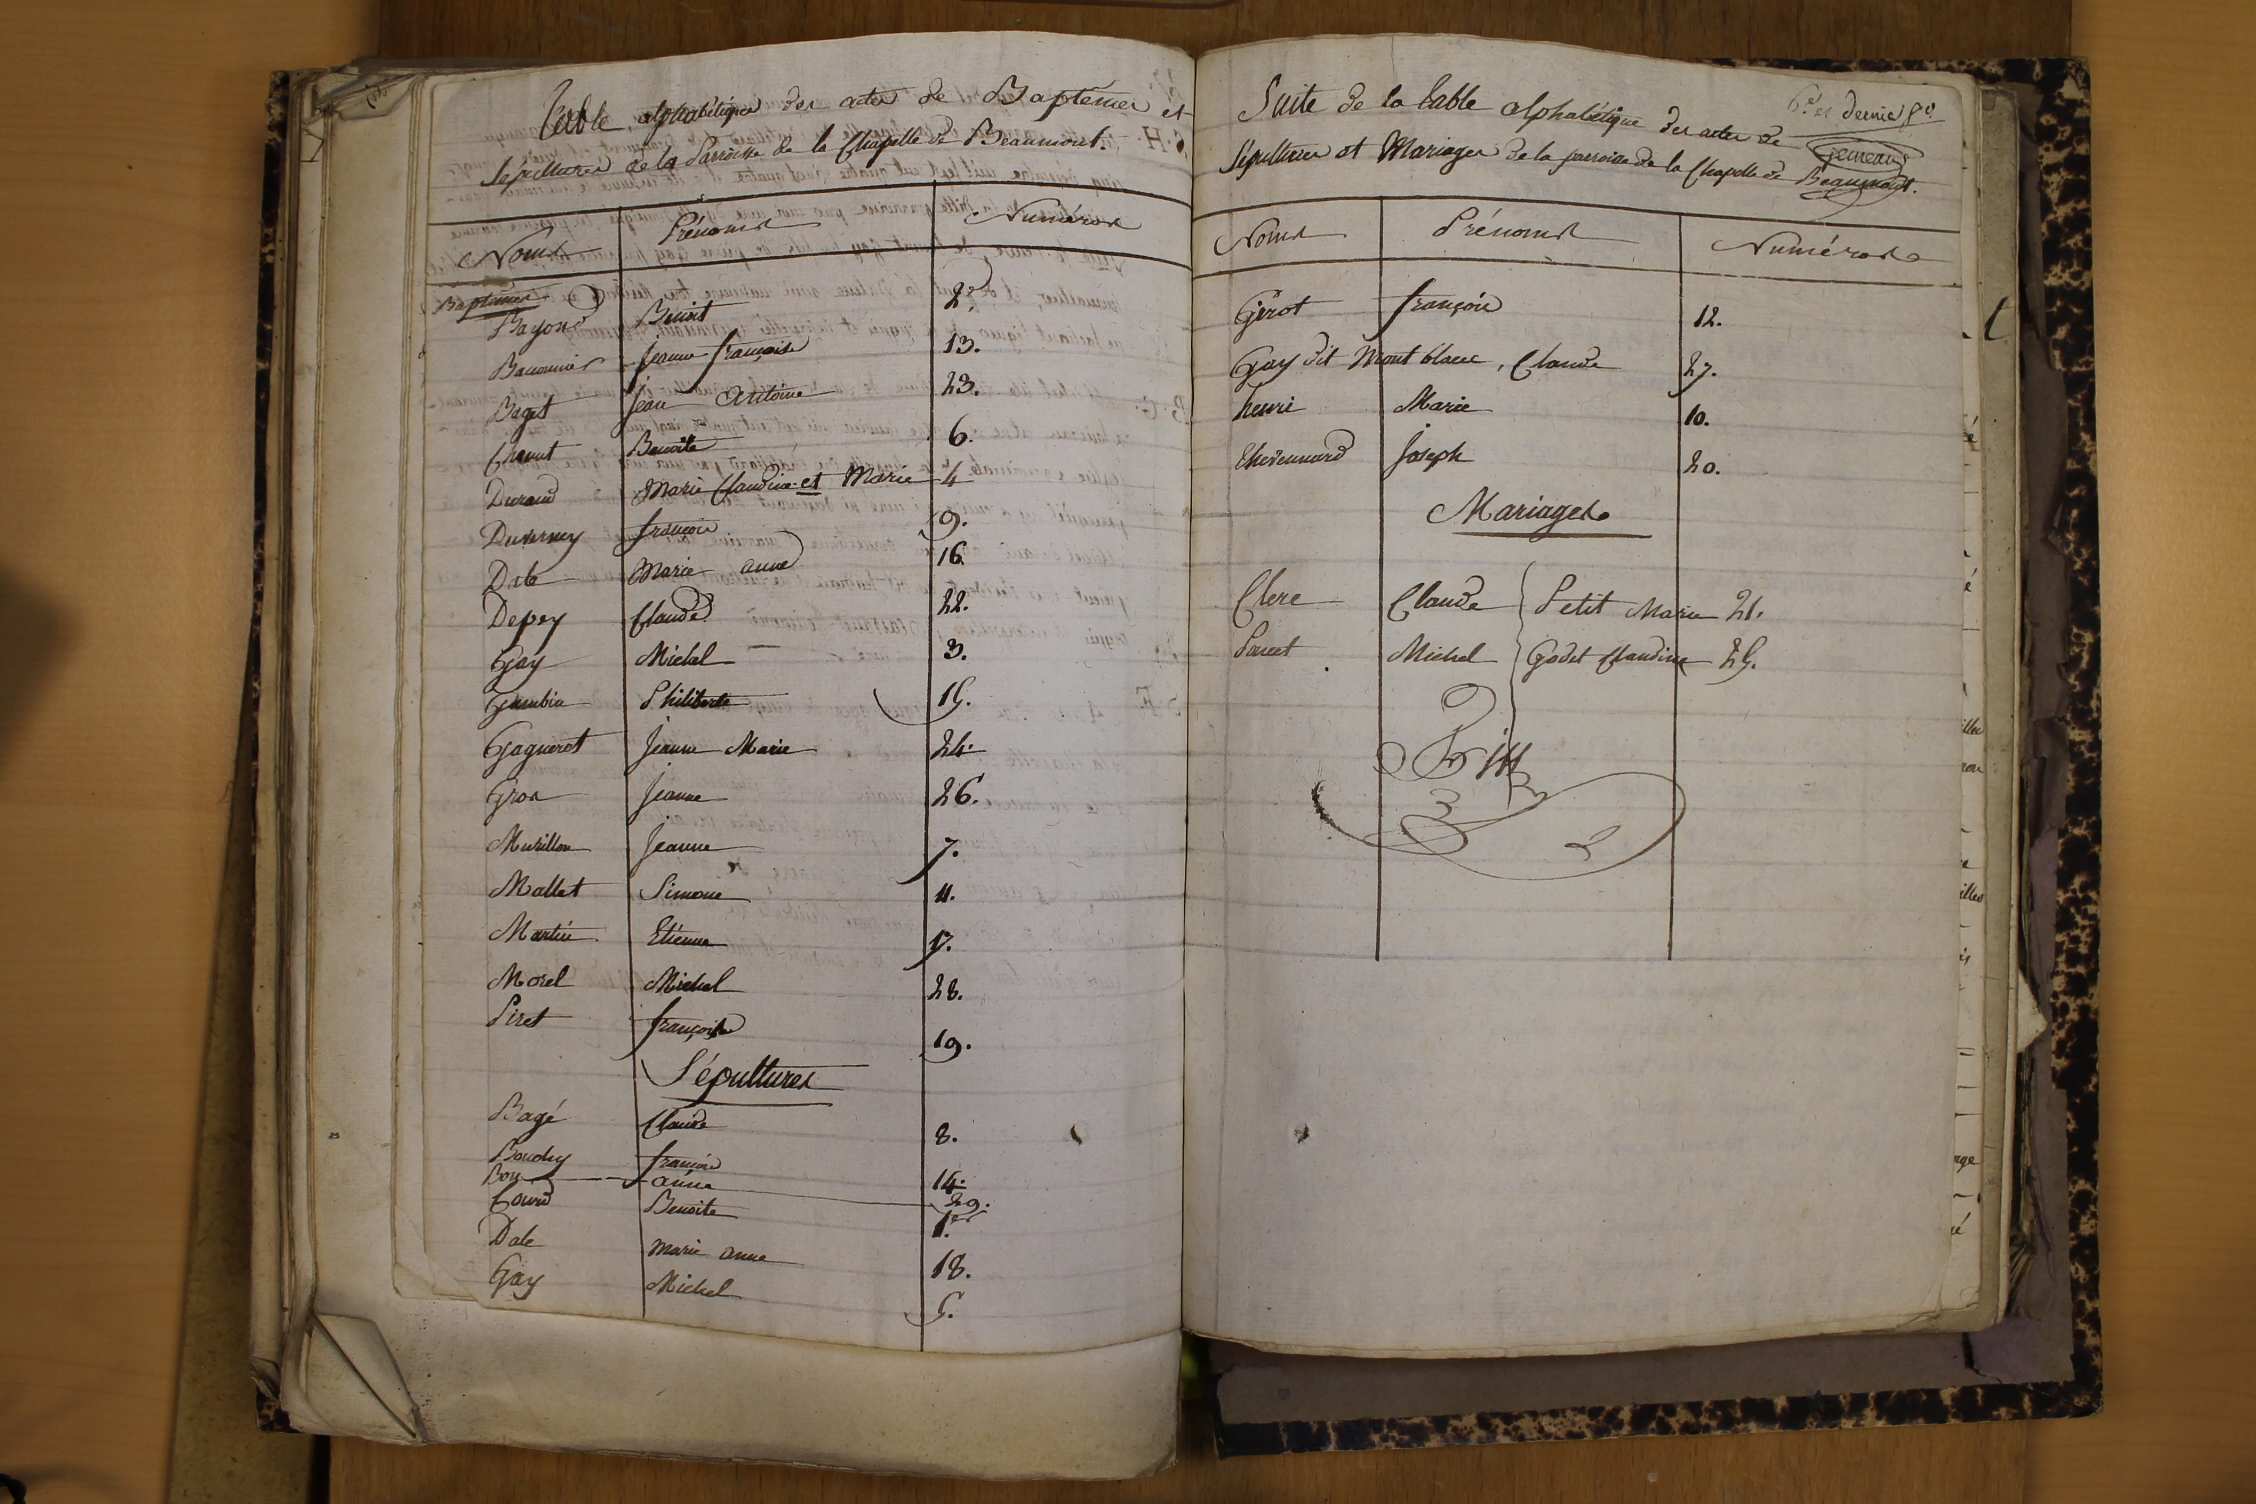 Table alphabétique des actes de Baptêmes et
Sépultures de la Parroisse de la Chapelle de Beaumont.
Noms Prénoms Numéros
Baptêmes
Bayon Benoit 2.
Jeanne françoise 13.
Baget Jean Antoine 23.
Chanut Benoite 6.
Durand Marie Claudine et Marie 4
Duverney françois 9.
Dale Marie anne 16.
Depey Claude 22.
Gay Michel 3.
Gambin Philiberte 15.
Gagneret Jeanne Marie 24.
Gros Jeanne 26.
Murillon Jeanne 7.
Mallet Simone 11.
Martin Etienne 17.
Morel Michel 28.
Piret françoise 19.
Sépultures
Bagé Claude 8.
Boudry françois 14.
Bon anne 29.
Courd Benoite 1.er
Dale marie anne 18.
Gay Michel 5.
6.e et dernie
Suite de la table alphabétique des actes de
Sépultures et Mariages de la parroisse de la Chapelle de Beaumont.
Noms Prénoms Numéros
Girot françois 12.
Gay dit Mont blanc, Claude 27.
henri Marie 10.
thevennard Joseph 20.
Mariages
Clerc Claude Petit Marie 21.
Poncet Michel Godet Claudine 25.
fin